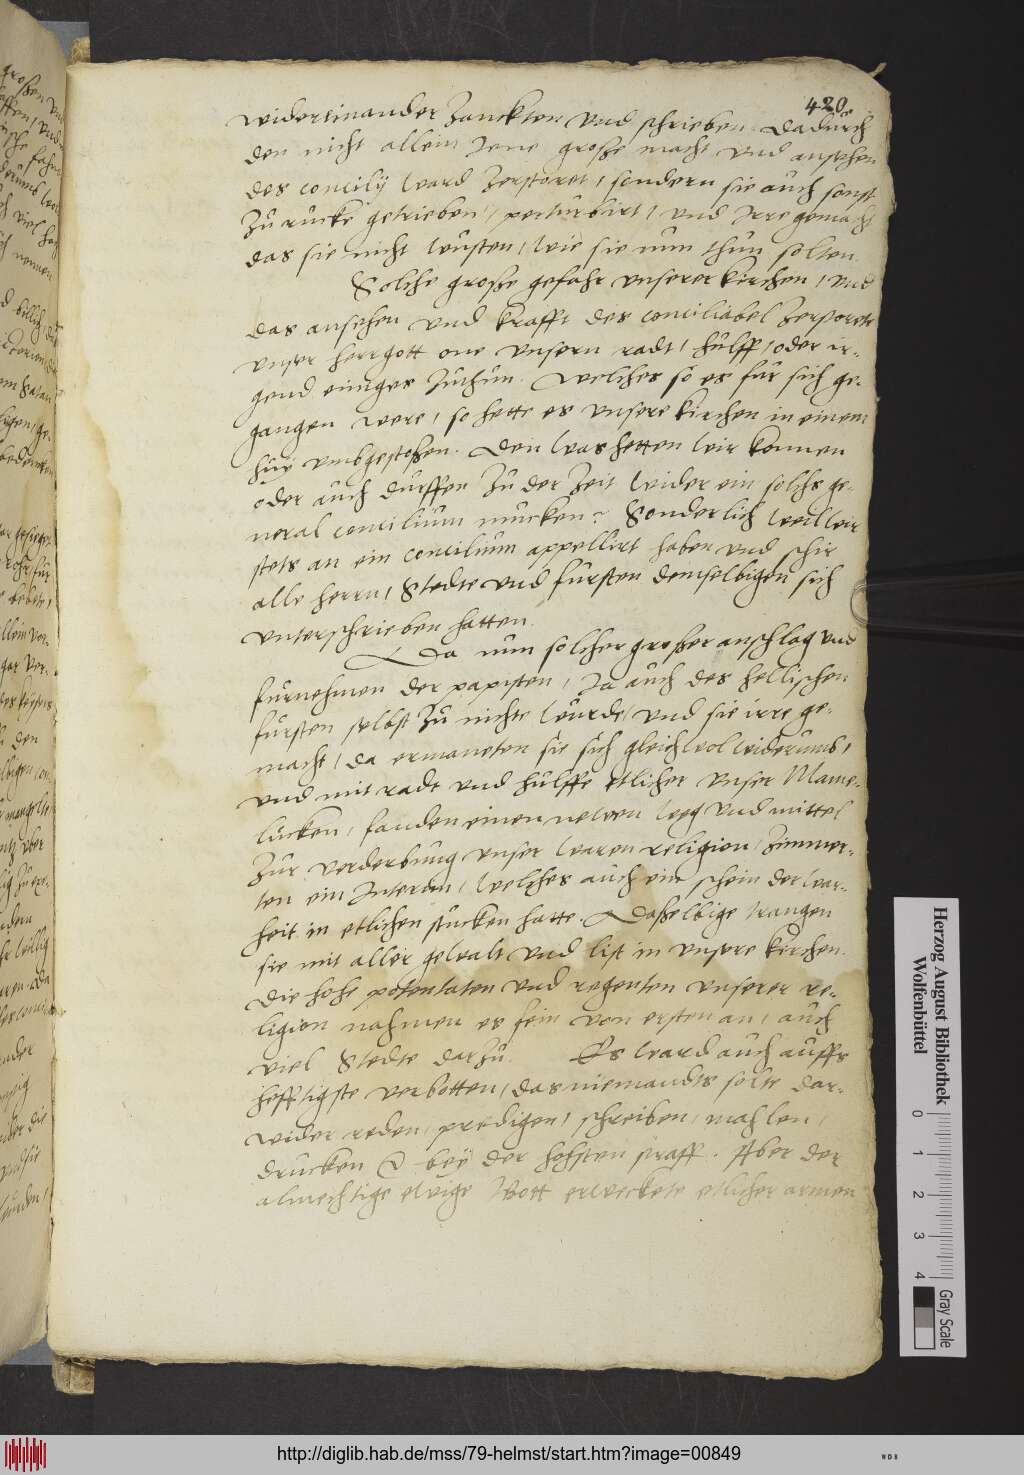 420
widereinander Zanckten und schrieben. Dadurch
den nicht allein Jene große macht und ansehen
des concilij ward Zerstoret, sondern sie auch sonst
Zu rucke getrieben, perturbirt, und Irre gemacht
das sie nicht wusten, wie sie nun thun solten.
Solche große gefahr unserer kirchen, und
das ansehen und krafft des conciliabel Zerstorete
unser herrgott one unsern radt, hulff, oder ir-
gend einiges Zuthun. Welches so es fur sich ge-
gangen were, so hette es unsere kirchen in einem
huy umbgestoßen. Den was hetten wir konnen
oder auch durffen Zu der Zeit wider ein solchs ge-
neral concilium mucken? Sonderlich weil wir
stets an ein concilium appellirt haben und schir
alle herrn, Stedte und fursten demselbigen sich
unterschrieben hatten.
Da nun solcher großer anschlag und
furnehmen der papisten, Ja auch des hellischen
fursten selbst Zu nichte wurde, und sie irre ge-
macht, da ermaneten sie sich gleichwol widerumb,
und mit radt und hulffe etlicher unser Mame-
lucken, fanden einen newen weg und mittel
Zur verderbung unser waren religion, Zimmer-
ten ein Interim, welches auch ein schein der war-
heit in etlichen stucken hatte. Daßelbige trangen
sie mit aller gewalt und list in unsere kirchen.
Die hohe potentaten und regenten unserer re-
ligion nahmen es fein von ersten an, auch
viel Stedte darzu. Es ward auch auffs
hefftigste verbotten, das niemandts solte dar-
wider reden, predigen, schreiben, mahlen,
drucken bey der hohsten straff. Aber der
almechtige ewige Gott erweckete etlicher armen
Herzog August Bibliothek
Wolfenbüttel
0 1 2 3 4
Gray Scale
http://diglib.hab.de/mss/79-helmst/start.htm?image=00849